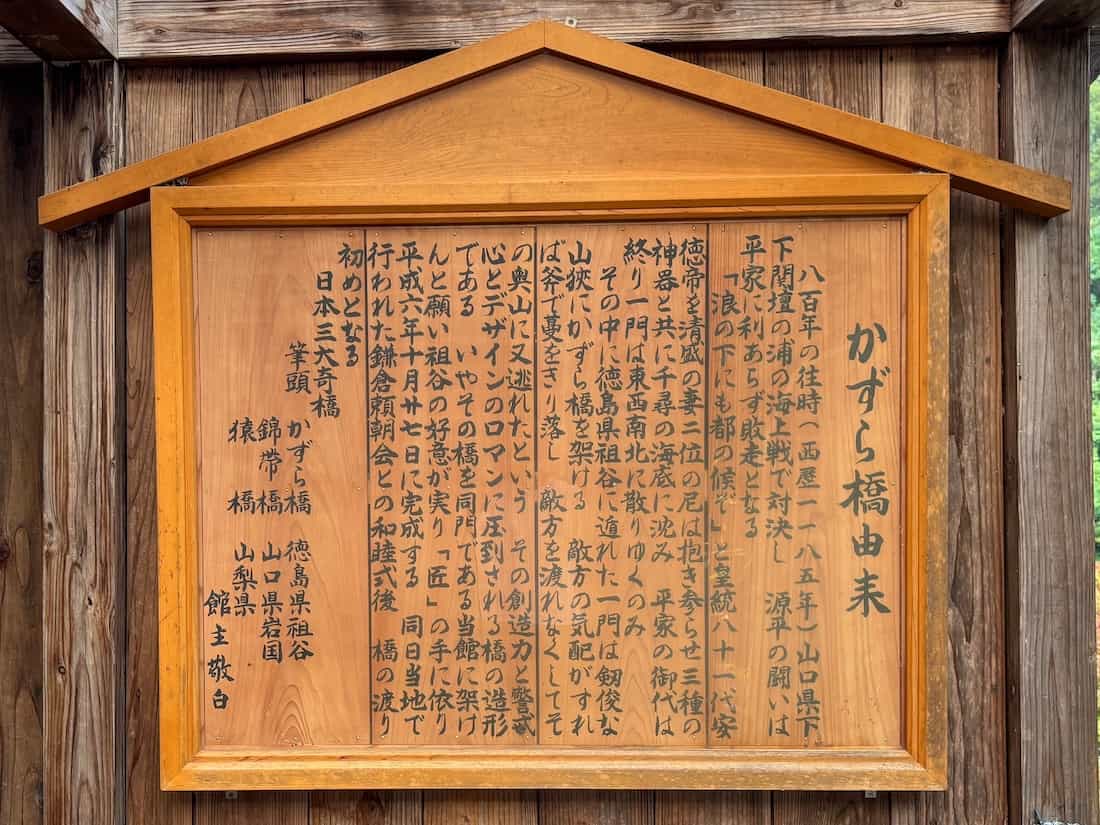 かずら橋由来
八百年の往時(西歴一一八五年)山口県下
下関壇の浦の海上戦で対決し 源平の闘いは
平家に利あらず敗走となる
「浪の下にも都の候ぞ」と皇統八十一代安
徳帝を清盛の妻二位の尼は抱き参らせ三種の
神器と共に千尋の海底に沈み 平家の御代は
終り一門は東西南北に散りゆくのみ
その中に徳島県祖谷に遁れた一門は釼俊な
山狹にかずら橋を架ける 敵方の気配がすれ
ば斧で蔓をきり落し 敵方を渡れなくしてそ
の奥山に又逃れたという その創造力と警戒
心とデザインのロマンに圧到される橋の造形
である いやその橋を同門である当館に架け
んと願い祖谷の好意が実り「匠」の手に依り
平成六年十月廿七日に完成する 同日当地で
行われた鎌倉頼朝会との和睦式後 橋の渡り
初めとなる
日本三大奇橋
筆頭 かずら橋 徳島県祖谷
錦帯橋 山口県岩国
猿橋 山梨県
館主敬白